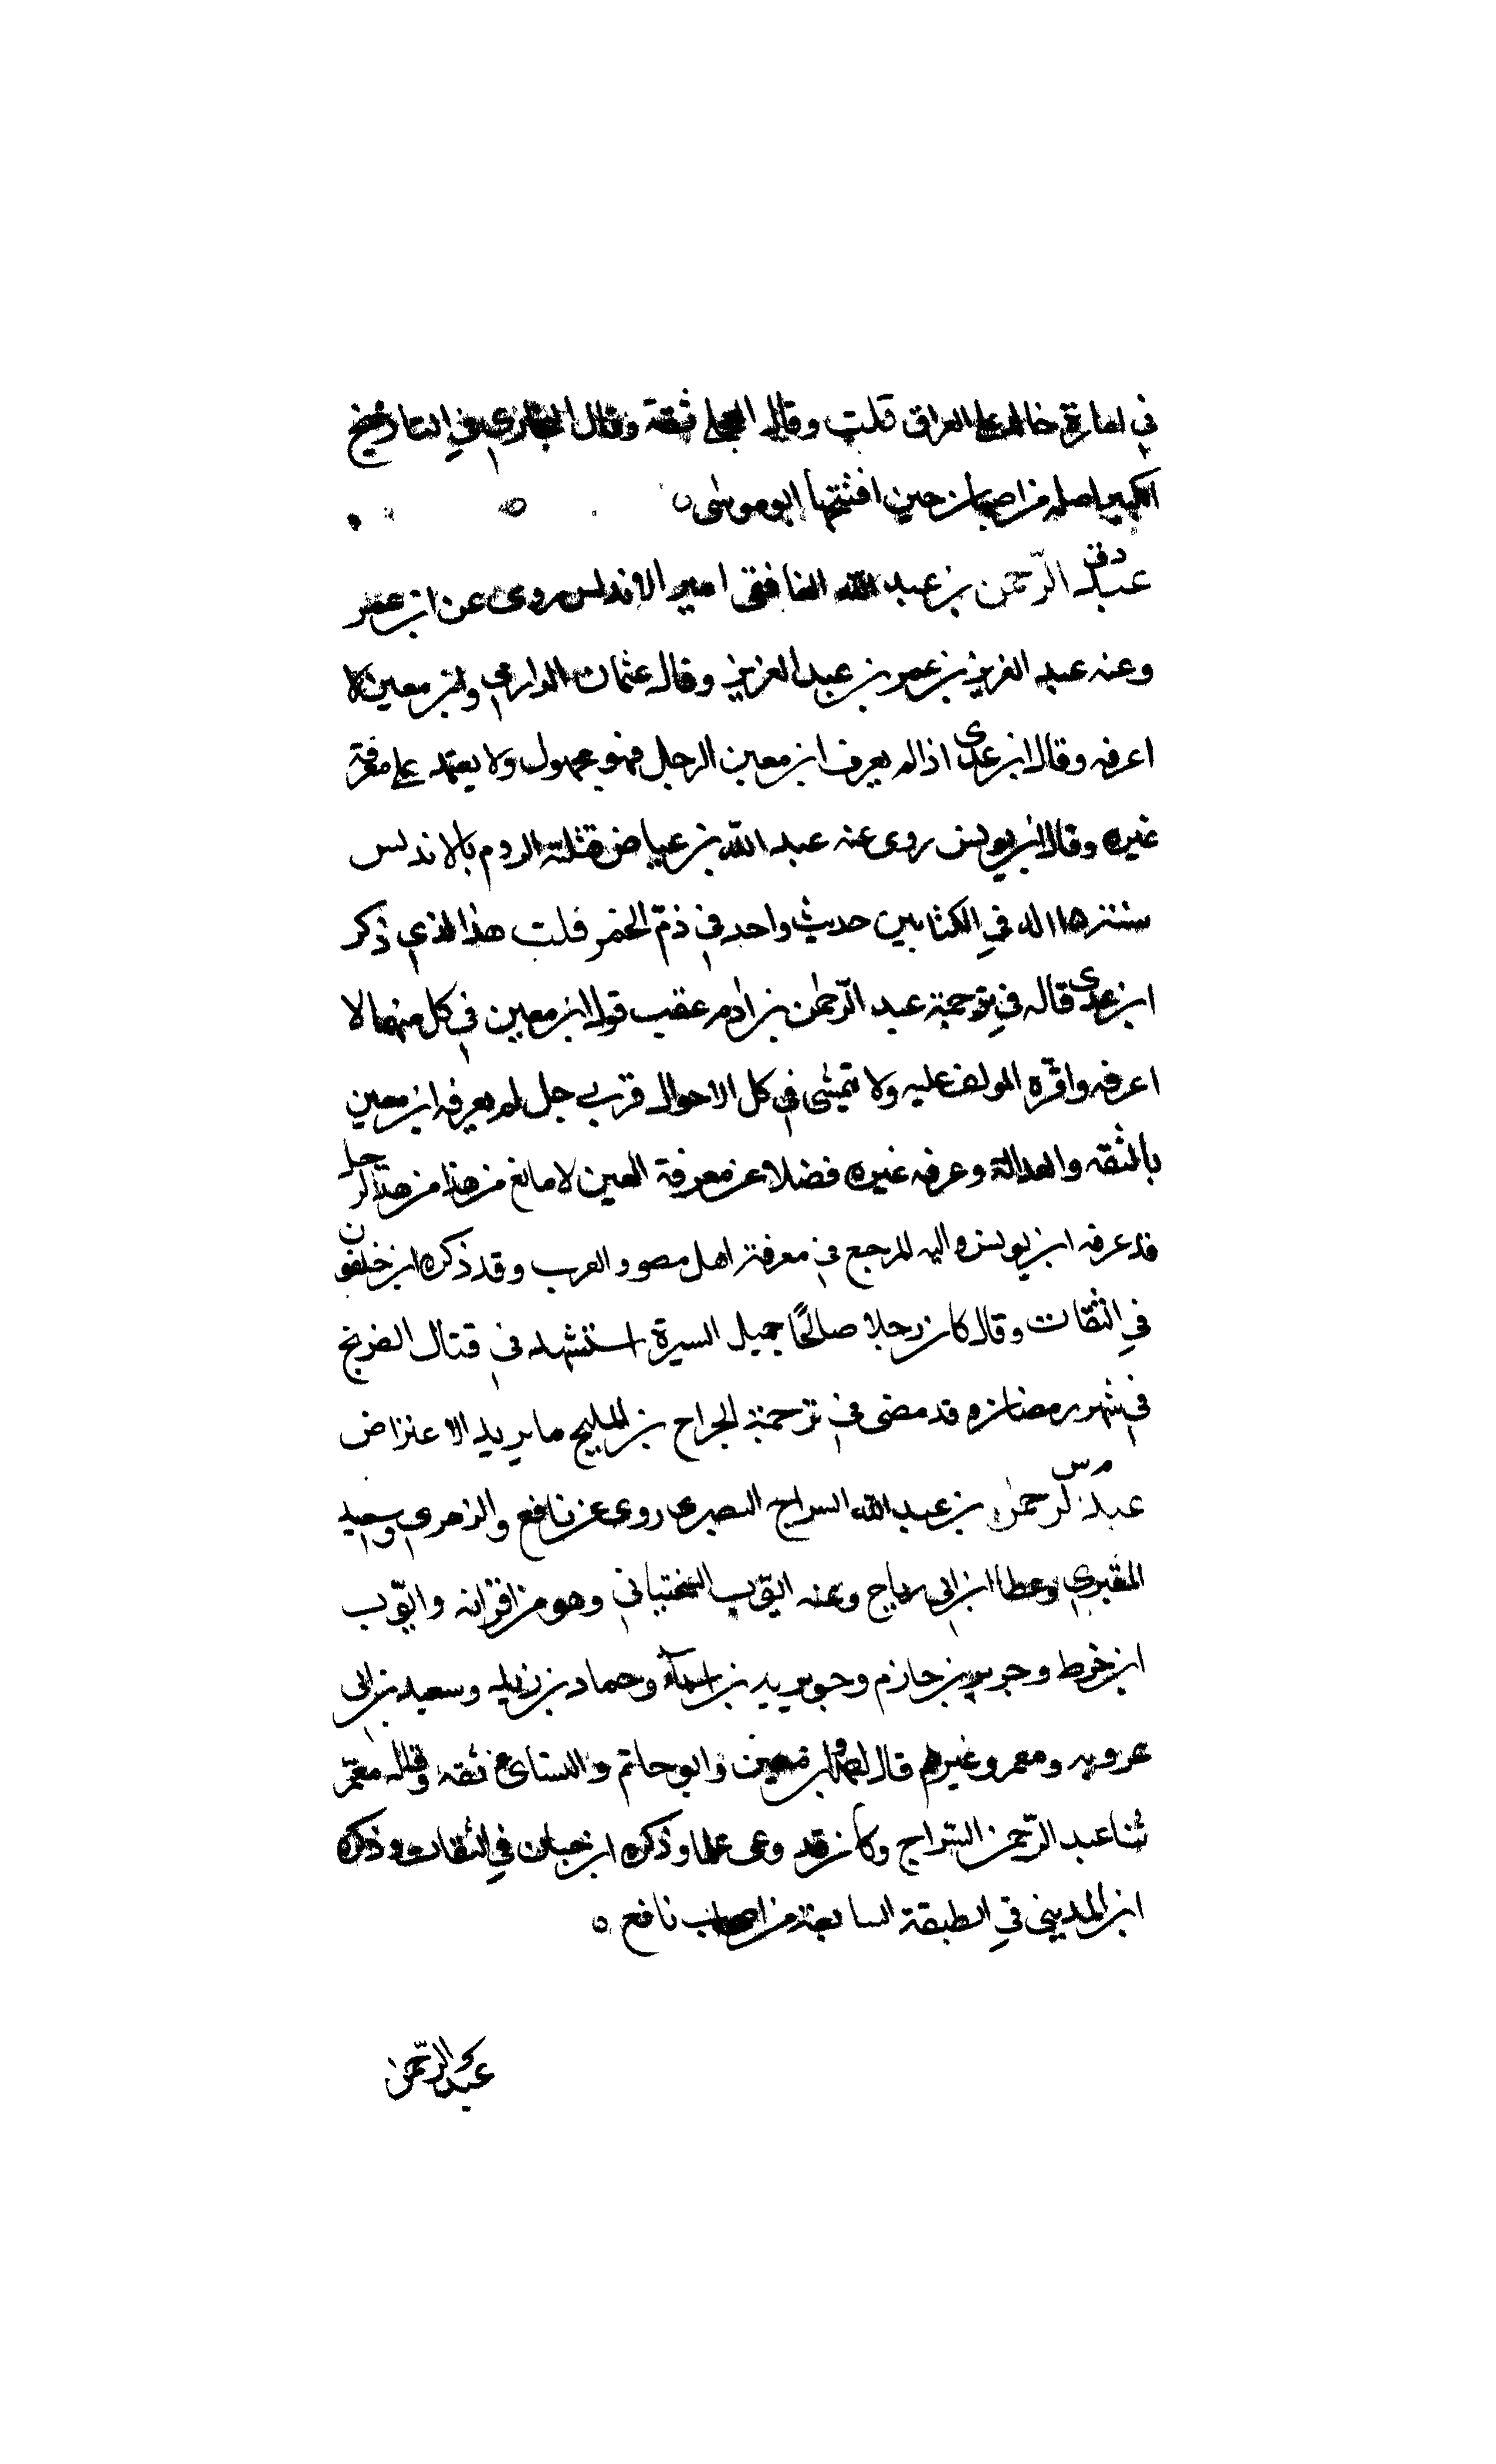 في امارة خالد على العراق قلت وقال العجلي ثقة وقال البخاري في التاريخ
الكبير اصله من اصبهان حين افتتحها ابو موسى
د ق
عبد الرحمن بن عبد الله الغافقي امير الاندلس روى عن ابن عمر
وعنه عبد العزيز بن عمر بن عبد العزيز وقال عثمان الدارمي عن ابن معين لا
اعرفه وقال ابن عدي اذا لم يعرف ابن معين الرجل فهو مجهول ولا يعتمد على معرفة
غيره وقال ابن يونس روى عنه عبد الله بن عياض قتلته الروم بالاندلس
له في الكتابين حديث واحد في ذمّ الخمر قلت هذا الذي ذكر
ابن عدي قاله في ترجمة عبد الرّحمن بن ادم عقب قول ابن معين في كل منهما لا
اعرفه واقرّه المولف عليه ولا يتمشى في كل الاحوال فرب رجل لم يعرفه ابن معين
بالثقه والعدالة وعرفه غيره فضلا عن معرفة العين لا مانع من هذا وهذا الرجل
قد عرفه ابن يونس واليه المرجع في معرفة اهل مصر والعرب وقد ذكره ابن خلفون
في الثقات وقال كان رجلا صالحًا جميل السيرة استشهد في قتال الفرنج
في شهر رمضان وقد مضى في ترجمة الجراح بن المليح ما يريد الاعتراض
م س
عبد الرحمن بن عبد الله السراج البصري روى عن نافع والزهري وسعيد
المقبري وعطا ابن ابي رباح وعنه ايّوب السختياني وهو من اقرانه وايّوب
ابن خوط وجرير بن حازم وجويرية بن اسمآء وحماد بن زيد وسعيد بن ابي
عروبه ومعمر وغيرهم قال احمد وابن معين وابو حاتم والنسائي ثقه وقال معتمر
ثنا عبد الرّحمن السّراج وكان قد وعى علما وذكره ابن حبان في الثقات وذكره
ابن المديني في الطبقة السابعة من اصحاب نافع
عبد الرّحمن